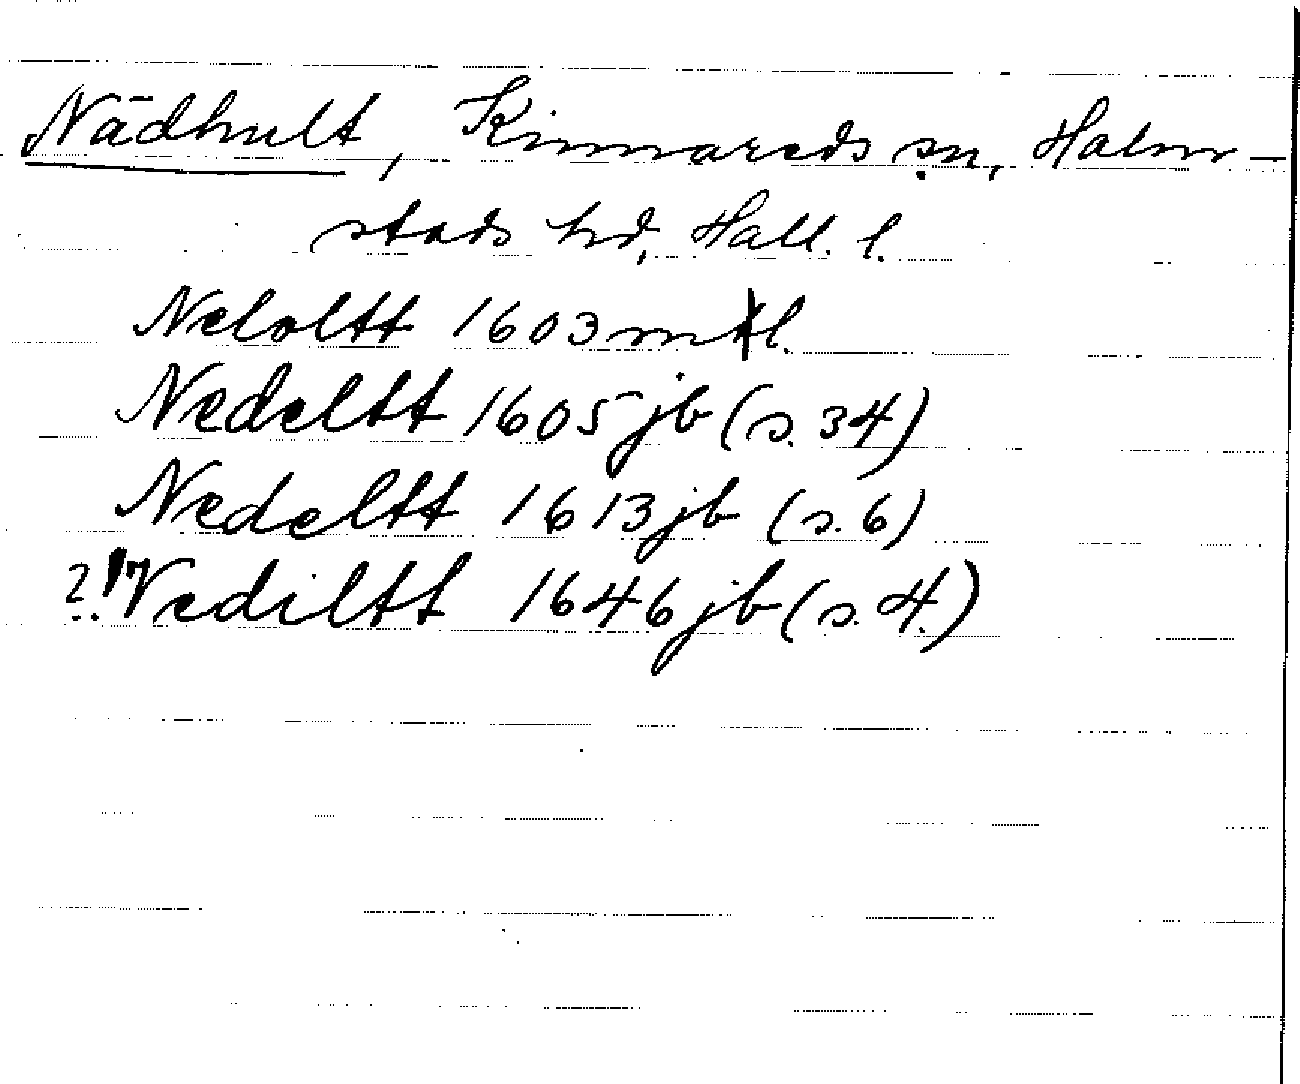 Nädhult, Kinnareds sn, Halm-
stads hd, Hall. l.
Neloltt 1603 mtl.
Nedeltt 1605 jb (s. 34)
Nedeltt 1613 jb (s. 6)
?! Vediltt 1646 jb (s. 4.)